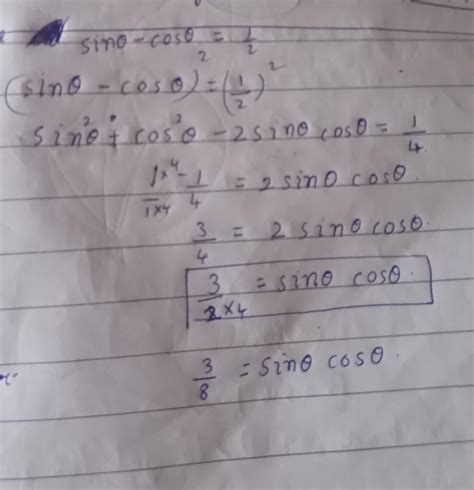 sinθ - cosθ = 1/2
(sinθ - cosθ)² = (1/2)²
sin²θ + cos²θ - 2sinθ cosθ = 1/4
1×4/1×4 - 1/4 = 2sinθ cosθ.
3/4 = 2 sinθ cosθ.
3/2×4 = sinθ cosθ.
3/8 = sinθ cosθ.